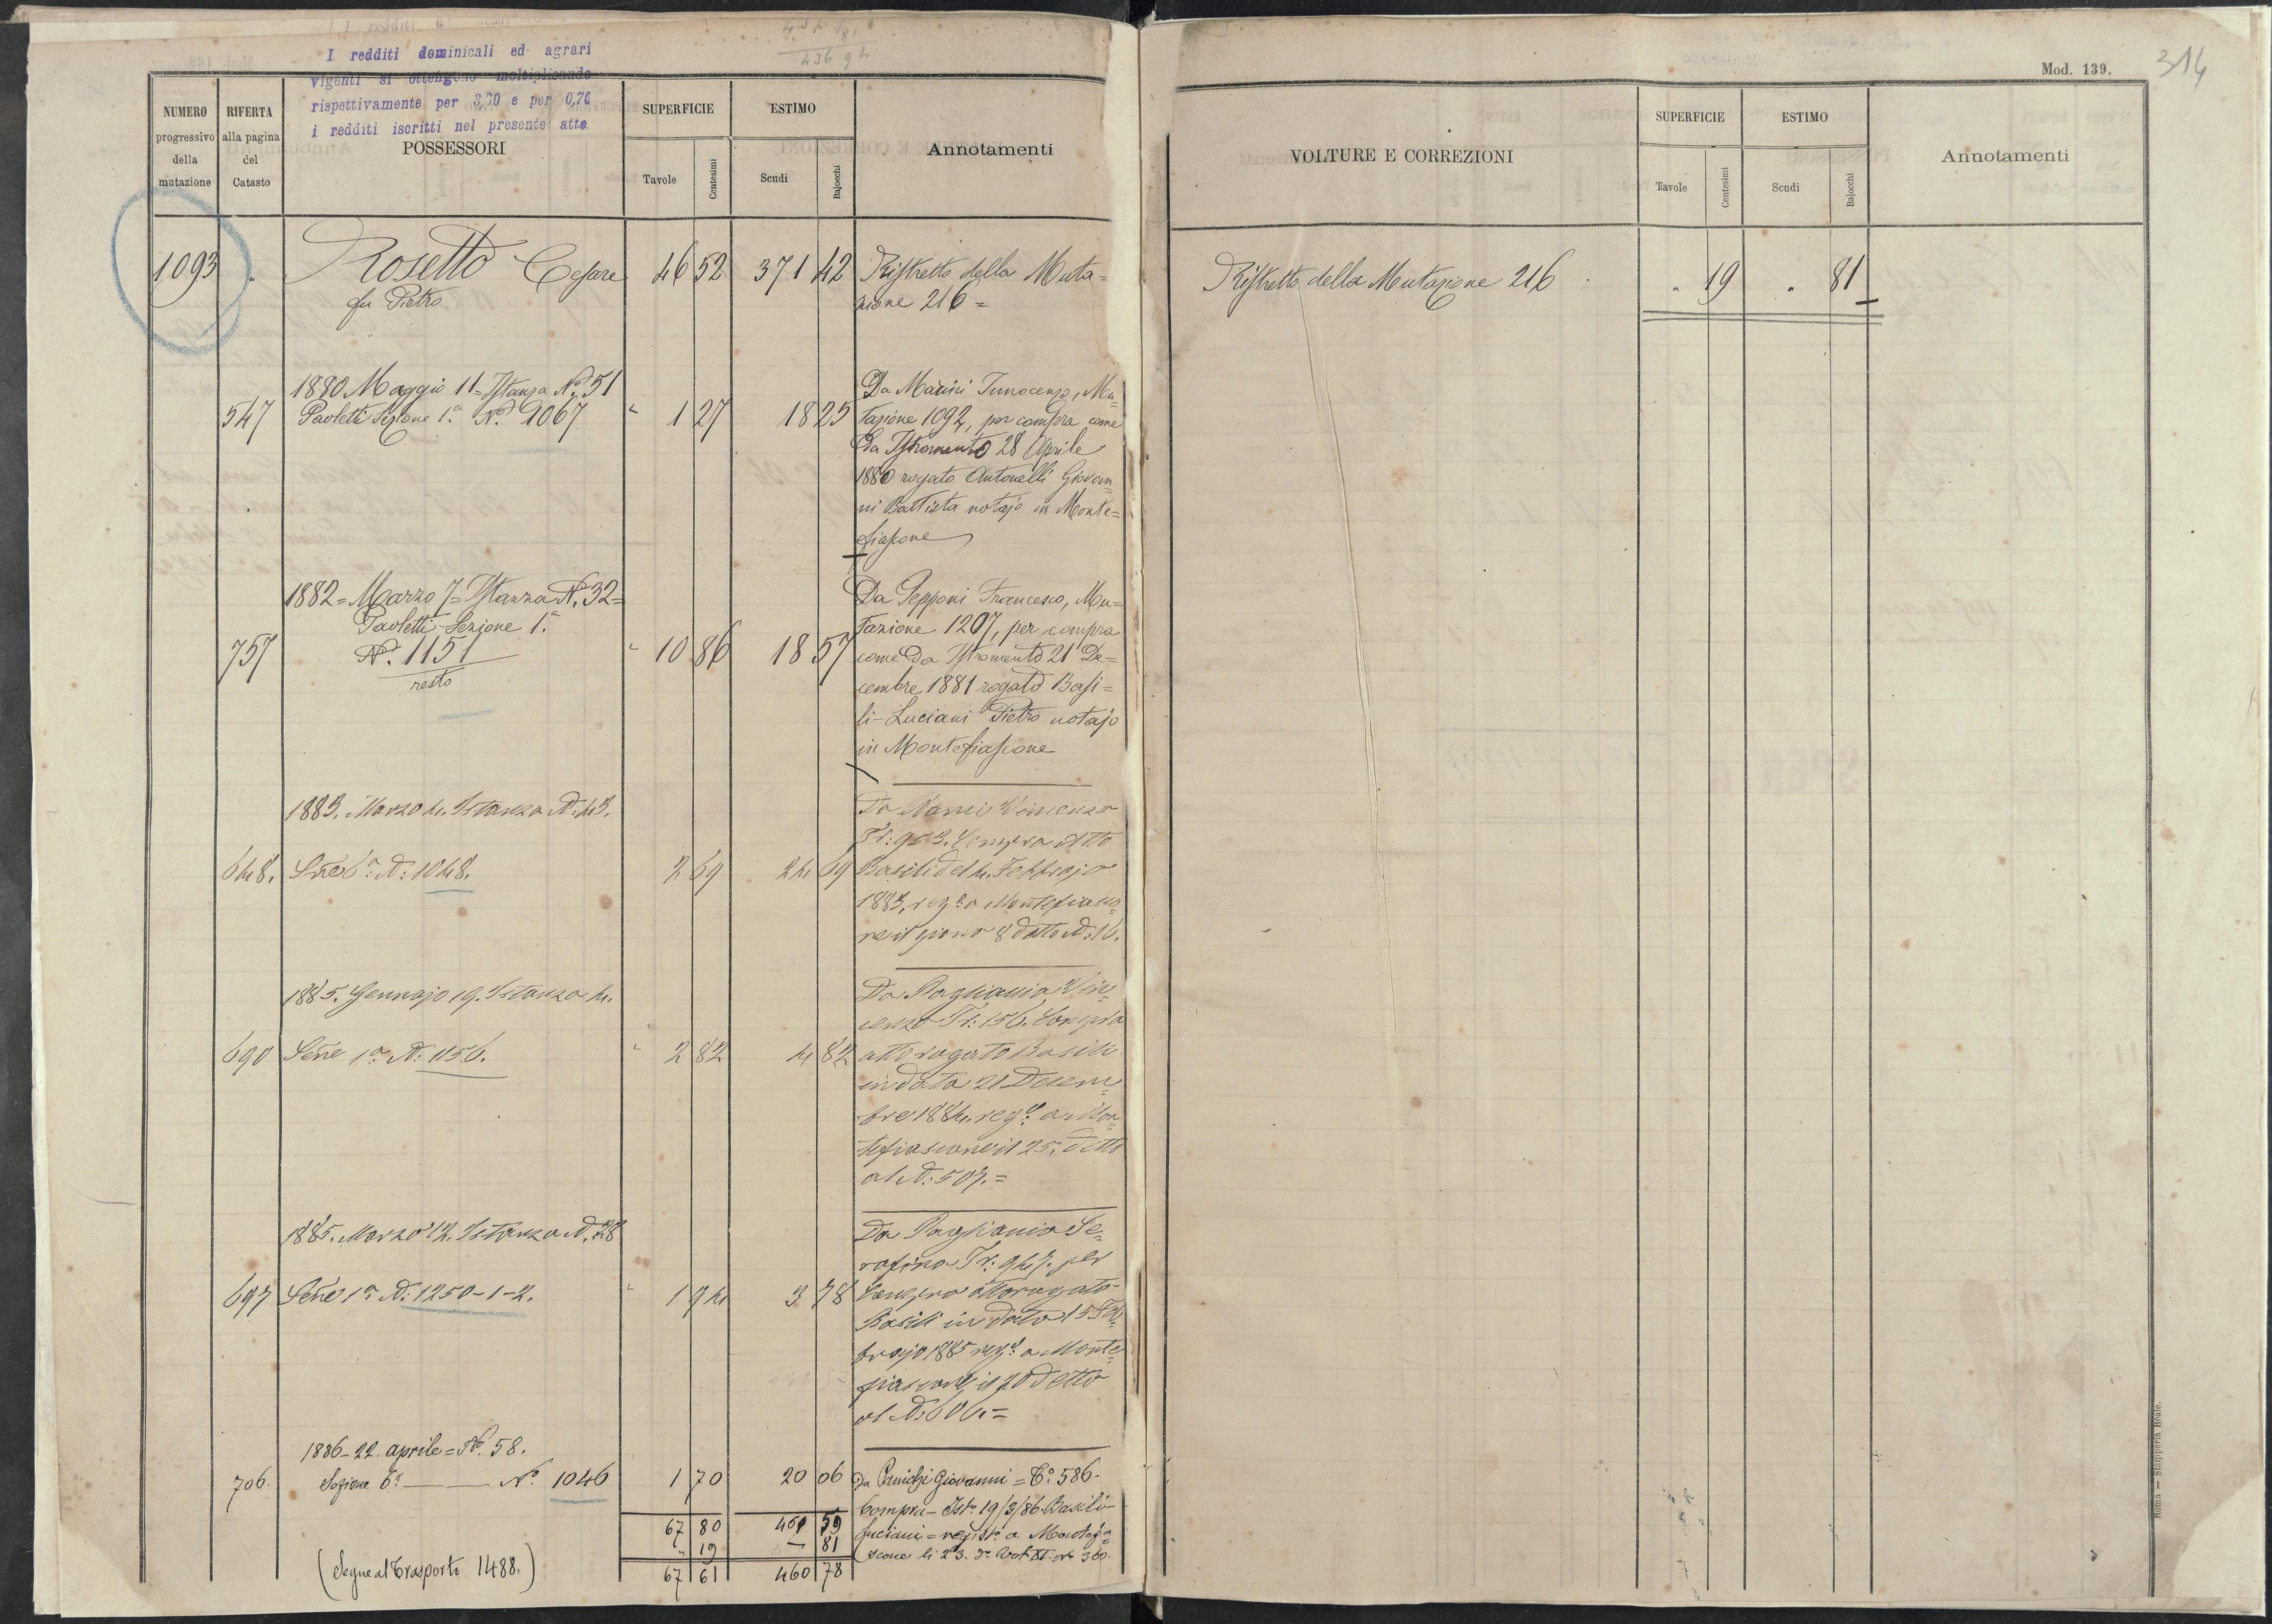 I redditi dominicali ed agrari
vigenti si ottengono moltiplicando
rispettivamente per 3,20 e per 0,70
i redditi iscritti nel presente atto.
NUMERO progressivo della mutazione
RIFERTA alla pagina del Catasto
POSSESSORI
SUPERFICIE
Tavole Centesimi
ESTIMO
Scudi Bajocchi
Annotamenti
1093 Rosetto Cesare 46 52 371 42 Ristretto della Muta=
fu Pietro zione 216=
1880 Maggio 11= Istanza N.° 51 Da Marini Innocenzo, Mu=
547 Paoletti Sezione 1.a N.° 1067 " 1 27 18 25 tazione 1092, per compra come
Da Istromento 28 Aprile
1880 rogato Antonelli Giovan
ni Battista notajo in Monte=
fiascone
1882= Marzo 7= Istanza N.° 32= Da Pepponi Francesco, Mu=
Paoletti Sezione 1.a tazione 1207, per compra
757 N.° 1151 " 10 86 18 57 come da Istromento 21 De=
resto cembre 1881 rogato Basi=
li-Luciani Pietro notajo
in Montefiascone
1883. Marzo 4. Istanza N: 43. Da Nanni Vincenzo
Compra Atto
648. Sne 6a N: 1048. 2 69 24 69 Basili del 4. Febbrajo
1883, reg.o a Montefiasco=
ne il giorno 8 detto N: 16.
1885. Gennajo 19. Istanza 4. Da Paglianio Vin=
cenzo Tr: 156. Compra
690 Sene 1a N: 1156. " 2 82 4 82 atto rogato Basili
in data 21. Decem=
bre 1884. reg.o a Mon=
tefiascone il 25. detto
al N: 507.=
1885. Marzo 12. Istanza N. 28 Da Paglianio Se=
rafino Tr: 947. per
697 Sene 1a N: 1250-1-2. " 1 94 3 78 Compra atto rogato
Basili in data 15 Feb=
brajo 1885 reg.o a Monte=
fiascone il 20 detto
al N: 606.=
1886-22. aprile= N.° 58.
706. Sezione 6a — N.° 1046 1 70 20 06 Da Giovanni = T.° 586.
Compra- Isto 19/3/86 Basili-
67 80 461 59 Luciani= registo a Montefia=
" 19 — 81 scone li 23. do Vol XI. No 360.
67 61 460 78
(Segue al Trasporto 1488.)
Mod. 139.
314
VOLTURE E CORREZIONI
SUPERFICIE
Tavole Centesimi
ESTIMO
Scudi Bajocchi
Annotamenti
Ristretto della Mutazione 216 . 19 . 81
Roma — Stamperia Reale.